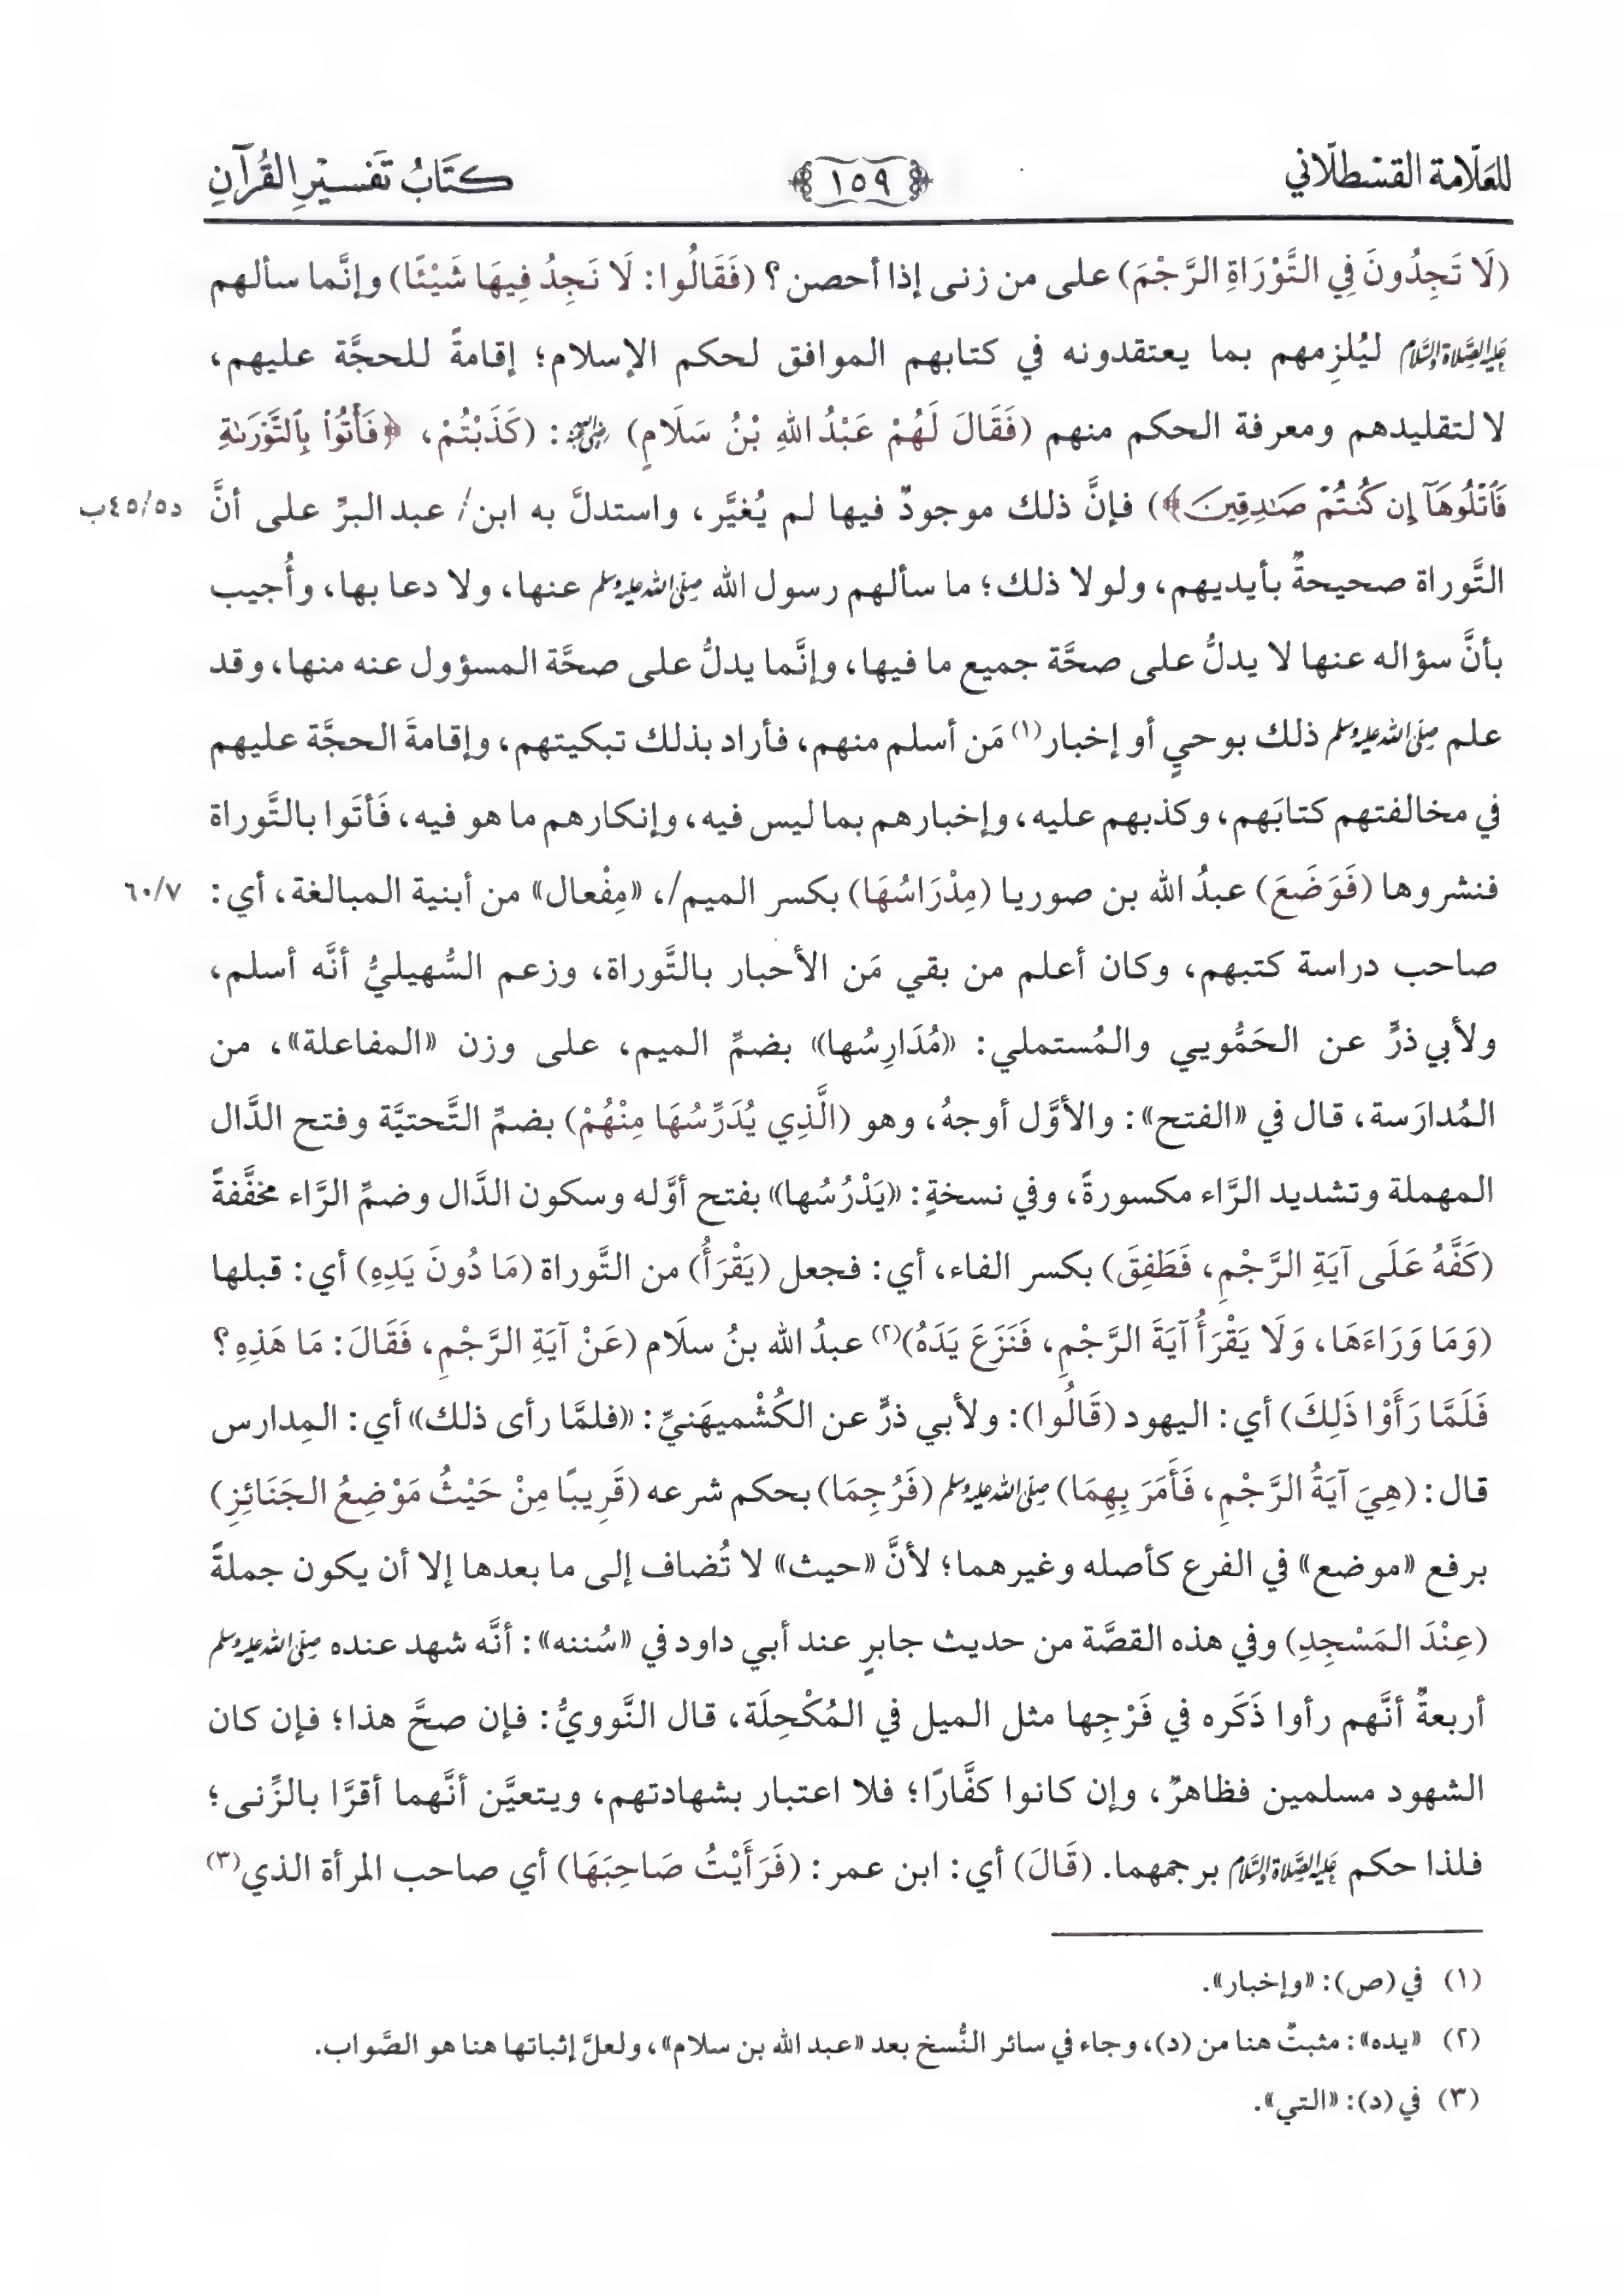 للعلّامة القسْطلّاني
١٥٩
كتَابُ تَفسيْرِ القُرآنِ
(لَا تَجِدُونَ فِي التَّوْرَاةِ الرَّجْمَ) على من زنى إذا أحصن؟ (فَقَالُوا: لَا نَجِدُ فِيهَا شَيْئًا) وإنَّما سألهم
عليه الصَّلاة والسَّلام ليُلزِمهم بما يعتقدونه في كتابهم الموافق لحكم الإسلام؛ إقامةً للحجَّة عليهم،
لا لتقليدهم ومعرفة الحكم منهم (فَقَالَ لَهُمْ عَبْدُ اللهِ بْنُ سَلَامٍ) رضي الله عنه: (كَذَبْتُمْ، ﴿فَأْتُوا۟ بِٱلتَّوْرَىٰةِ
فَٱتْلُوهَآ إِن كُنتُمْ صَٰدِقِينَ﴾) فإنَّ ذلك موجودٌ فيها لم يُغيَّر، واستدلَّ به ابن/ عبد البرِّ على أنَّ
د٤٥/٥ب
التَّوراة صحيحةٌ بأيديهم، ولولا ذلك؛ ما سألهم رسول الله صلى الله عليه وسلم عنها، ولا دعا بها، وأُجيب
بأنَّ سؤاله عنها لا يدلُّ على صحَّة جميع ما فيها، وإنَّما يدلُّ على صحَّة المسؤول عنه منها، وقد
علم صلى الله عليه وسلم ذلك بوحيٍ أو إخبار(١) مَن أسلم منهم، فأراد بذلك تبكيتهم، وإقامةَ الحجَّة عليهم
في مخالفتهم كتابَهم، وكذبهم عليه، وإخبارهم بما ليس فيه، وإنكارهم ما هو فيه، فَأتَوا بالتَّوراة
فنشروها (فَوَضَعَ) عبدُ الله بن صوريا (مِدْرَاسُهَا) بكسر الميم/، «مِفْعال» من أبنية المبالغة، أي:
٦٠/٧
صاحب دراسة كتبهم، وكان أعلم من بقي مَن الأحبار بالتَّوراة، وزعم السُّهيليُّ أنَّه أسلم،
ولأبي ذرٍّ عن الحَمُّويي والمُستملي: «مُدَارِسُها» بضمِّ الميم، على وزن «المفاعلة»، من
المُدارَسة، قال في «الفتح»: والأوَّل أوجهُ، وهو (الَّذِي يُدَرِّسُهَا مِنْهُمْ) بضمِّ التَّحتيَّة وفتح الدَّال
المهملة وتشديد الرَّاء مكسورةً، وفي نسخةٍ: «يَدْرُسُها» بفتح أوَّله وسكون الدَّال وضمِّ الرَّاء مخفَّفةً
(كَفَّهُ عَلَى آيَةِ الرَّجْمِ، فَطَفِقَ) بكسر الفاء، أي: فجعل (يَقْرَأُ) من التَّوراة (مَا دُونَ يَدِهِ) أي: قبلها
(وَمَا وَرَاءَهَا، وَلَا يَقْرَأُ آيَةَ الرَّجْمِ، فَنَزَعَ يَدَهُ)(٢) عبدُ الله بنُ سلَام (عَنْ آيَةِ الرَّجْمِ، فَقَالَ: مَا هَذِهِ؟
فَلَمَّا رَأَوْا ذَلِكَ) أي: اليهود (قَالُوا): ولأبي ذرٍّ عن الكُشْميهَنيِّ: «فلمَّا رأى ذلك» أي: المِدارس
قال: (هِيَ آيَةُ الرَّجْمِ، فَأَمَرَ بِهِمَا) صلى الله عليه وسلم (فَرُجِمَا) بحكم شرعه (قَرِيبًا مِنْ حَيْثُ مَوْضِعُ الجَنَائِزِ)
برفع «موضع» في الفرع كأصله وغيرهما؛ لأنَّ «حيث» لا تُضاف إلى ما بعدها إلا أن يكون جملةً
(عِنْدَ المَسْجِدِ) وفي هذه القصَّة من حديث جابرٍ عند أبي داود في «سُننه»: أنَّه شهد عنده صلى الله عليه وسلم
أربعةٌ أنَّهم رأوا ذَكَره في فَرْجِها مثل الميل في المُكْحِلَة، قال النَّوويُّ: فإن صحَّ هذا؛ فإن كان
الشهود مسلمين فظاهرٌ، وإن كانوا كفَّارًا؛ فلا اعتبار بشهادتهم، ويتعيَّن أنَّهما أقرَّا بالزِّنى؛
فلذا حكم عليه الصَّلاة والسَّلام برجمهما. (قَالَ) أي: ابن عمر: (فَرَأَيْتُ صَاحِبَهَا) أي صاحب المرأة الذي(٣)
(١) في (ص): «وإخبار».
(٢) «يده»: مثبتٌ هنا من (د)، وجاء في سائر النُّسخ بعد «عبد الله بن سلام»، ولعلَّ إثباتها هنا هو الصَّواب.
(٣) في (د): «التي».